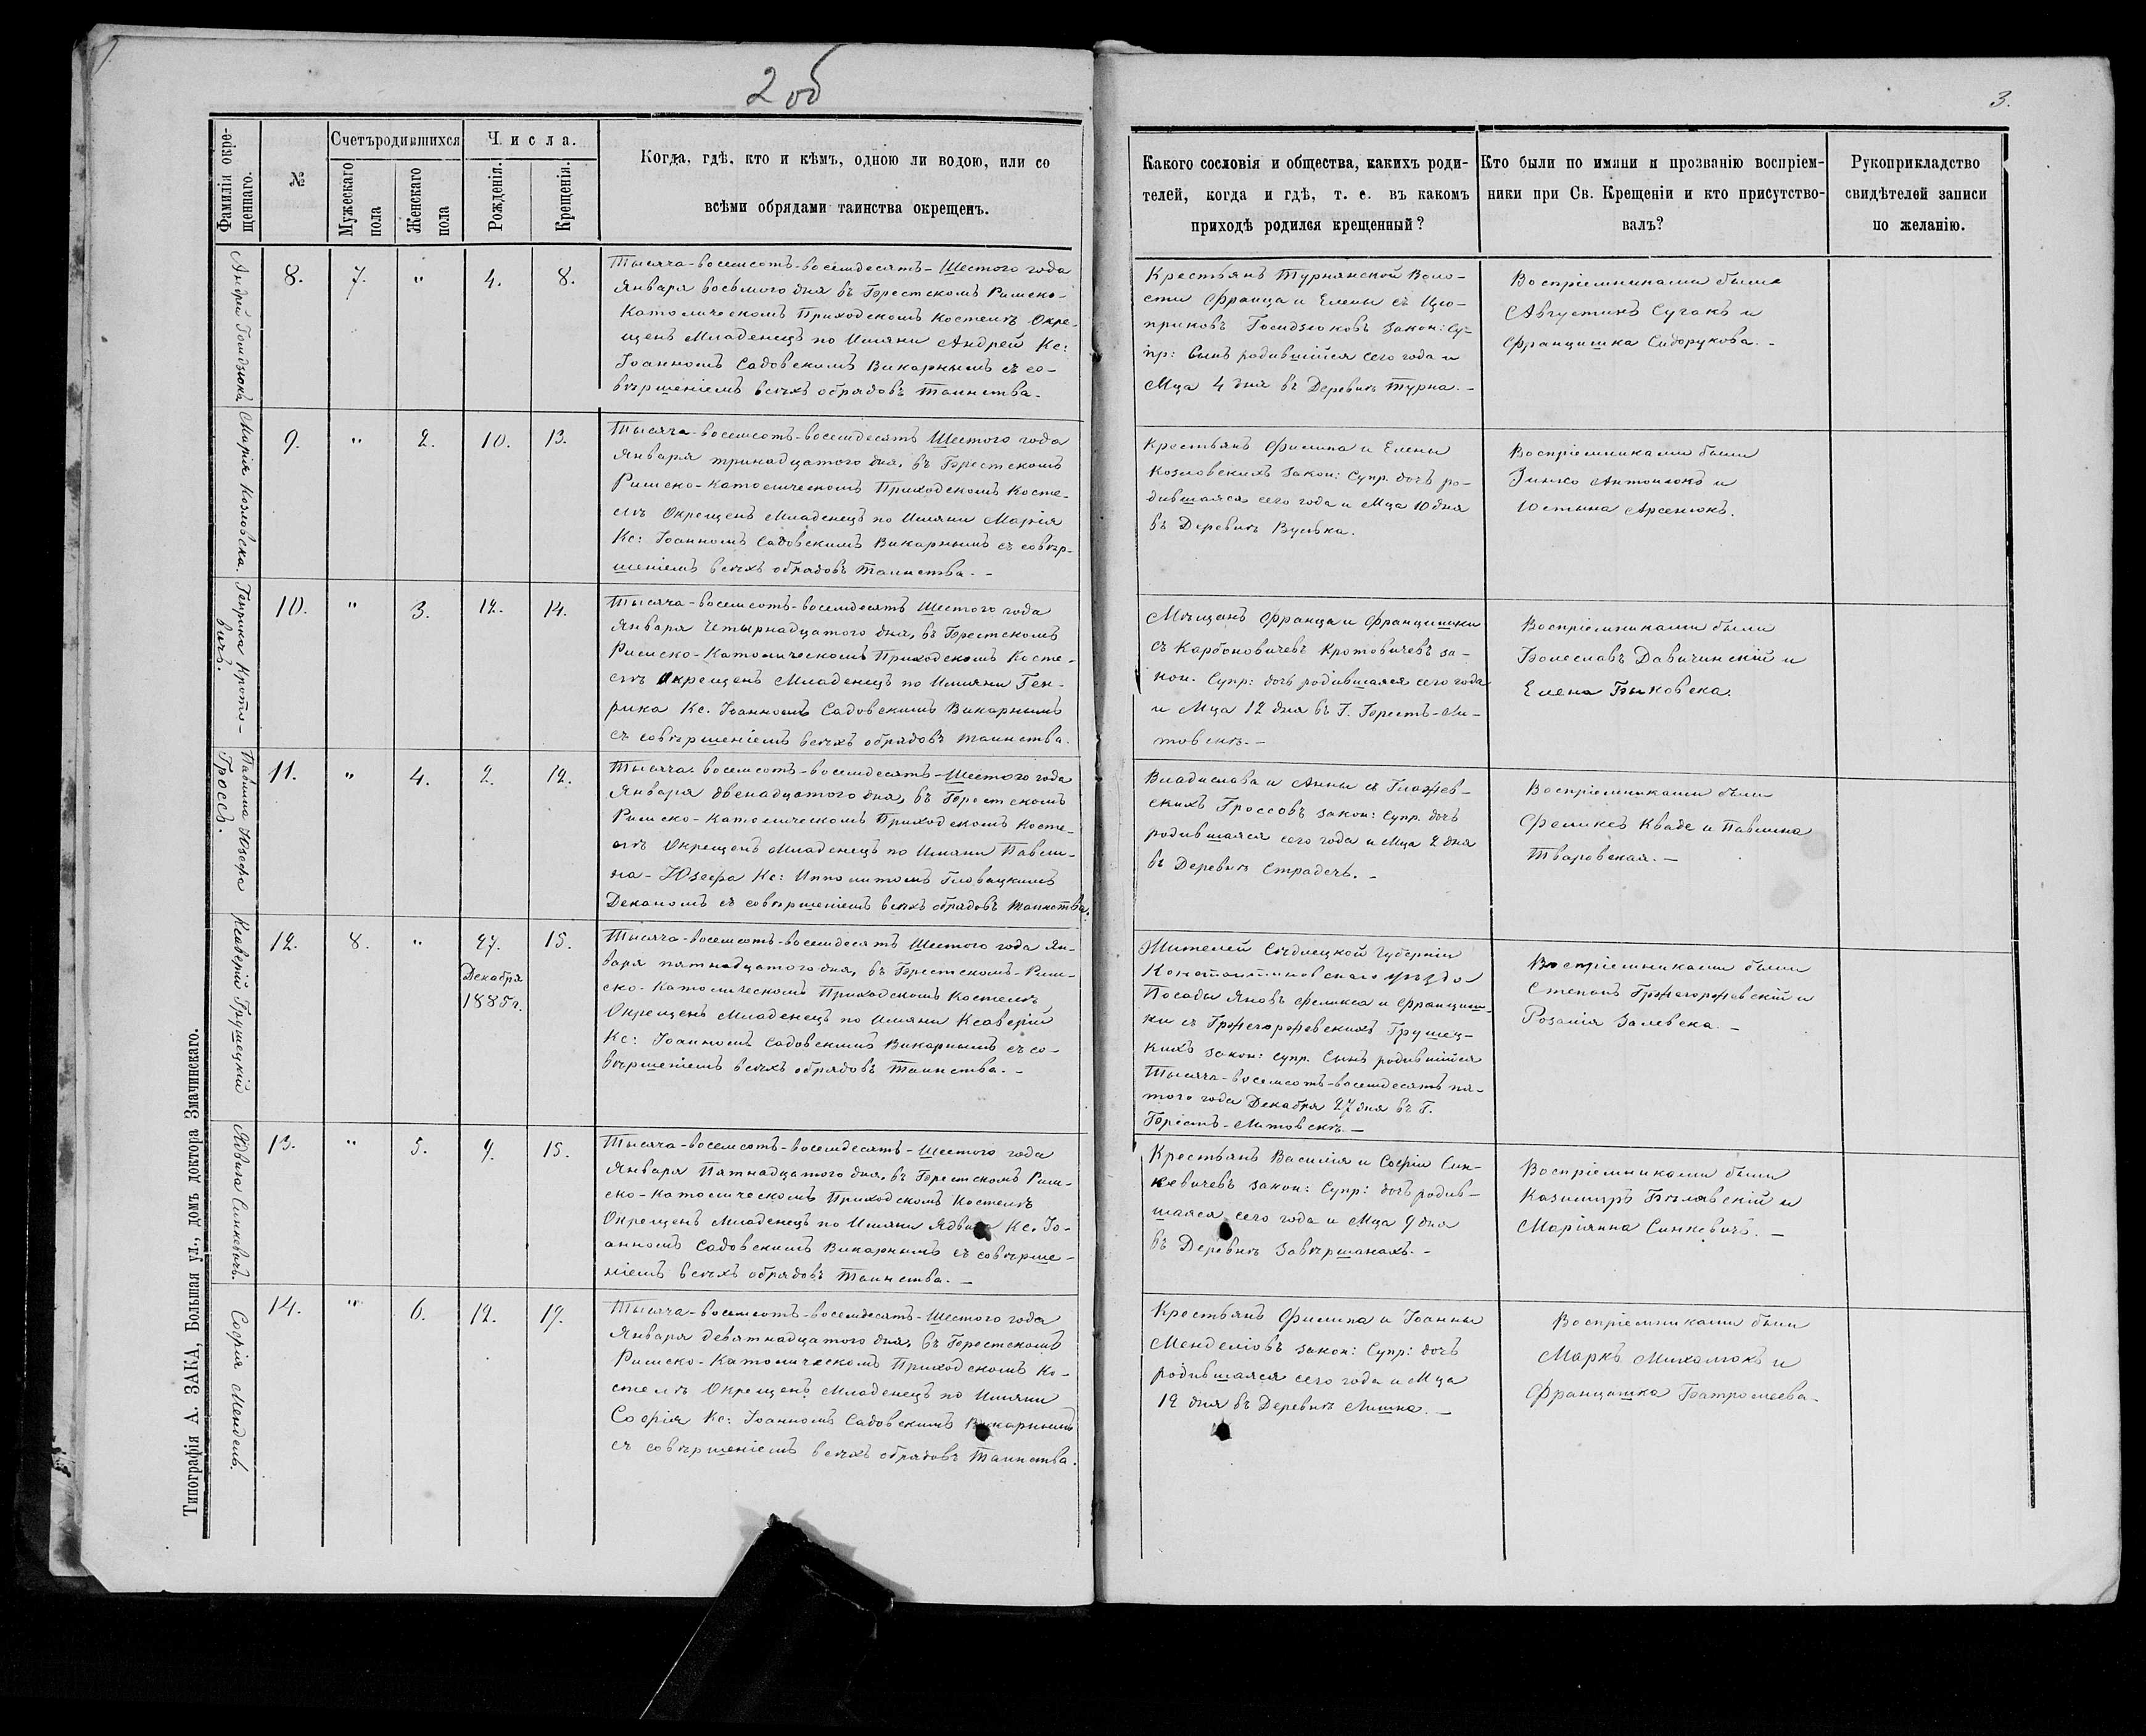 2 об
3.
Фамилія окре-
щеннаго.
№
Счетъ родившихся
Мужескаго
пола
Женскаго
пола
Числа.
Рожденія.
Крещенія.
Когда, гдѣ, кто и кѣмъ, одною ли водою, или со
всѣми обрядами таинства окрещенъ.
Какого сословія и общества, какихъ роди-
телей, когда и гдѣ, т. е. въ какомъ
приходѣ родился крещенный?
Кто были по имяни и прозванію воспріем-
ники при Св. Крещеніи и кто присутство-
валъ?
Рукоприкладство
свидѣтелей записи
по желанію.
Андрей
8. 7. " 4. 8.
Тысяча-восемсотъ-восемдесятъ-Шестого года
Января восьмого дня въ Брестскомъ Римско-
Католическомъ Приходскомъ Костелѣ Окре-
щенъ Младенецъ по Имяни Андрей Кс:
Іоанномъ Садовскимъ Викарнымъ съ со-
вѣршеніемъ всѣхъ обрядовъ Таинства.
Крестьянъ Турнянской Воло-
сти Франца и Елены съ Цю-
приковъ закон: Су-
пр: сынъ родившійся сего года и
Мца 4 дня въ Деревнѣ Турна. -
Воспріемниками были
Августинъ Сугакъ и
Францишка Сидорукова. -
Марія Козловска.
9. " 2. 10. 13.
Тысяча-восемсотъ-восемдесятъ Шестого года
Января тринадцатого дня, въ Брестскомъ
Римско-Католическомъ Приходскомъ Косте-
лѣ Окрещенъ Младенецъ по Имяни Марія
Кс: Іоанномъ Садовскимъ Викарнымъ съ совѣр-
шеніемъ всѣхъ обрядовъ Таинства. -
Крестьянъ Филипа и Елены
Козловскихъ Закон: Супр. дочь ро-
дившаяся сего года и Мца 10 дня
въ Деревнѣ Вулька.
Воспріемниками были
Зинко Антонюкъ и
Юстына Арсенюкъ.
Генрика Крото-
вичъ.
10. " 3. 12. 14.
Тысяча-восемсотъ-восемдесятъ Шестого года
Января Четырнадцатого дня, въ Брестскомъ
Римско-Католическомъ Приходскомъ Косте-
лѣ Окрещенъ Младенецъ по Имяни Ген-
рика Кс. Іоанномъ Садовскимъ Викарнымъ
съ совѣршеніемъ всѣхъ обрядовъ таинства.
Мѣщанъ Франца и Францишки
съ Карбоновичевъ Кротовичевъ за-
кон. Супр: дочь родившаяся сего года
и Мца 12 дня въ Г. Брестъ-Ли-
товскѣ. -
Воспріемниками были
Болеславъ Давичинскій и
Елена Быковска.
Павлина Юзефа
Гроссъ.
11. " 4. 2. 12.
Тысяча восемсотъ-восемдесятъ-Шестого года
Января двенадцатого дня, въ Брестскомъ
Римско-Католическомъ Приходскомъ Косте-
лѣ Окрещенъ Младенецъ по Имяни Павли-
на-Юзефа Кс: Ипполитомъ Гловацкимъ
Деканомъ съ совѣршеніемъ всѣхъ обрядовъ таинства.
Владислава и Анны съ
скихъ Гроссовъ закон: Супр. дочь
родившаяся сего года и Мца 2 дня
въ Деревнѣ Страдечь. -
Воспріемниками были
Феликсъ Кваде и Павлина
Тваровская. -
Ксаверій Грушецкій
12. 8. " 27. 15.
Декабря
1885 г.
Тысяча-восемсотъ-восемдесятъ Шестого года Ян-
варя пятнадцатого дня, въ Брестскомъ-Рим-
ско-Католическомъ Приходскомъ Костелѣ
Окрещенъ Младенецъ по Имяни Ксаверій
Кс: Іоанномъ Садовскимъ Викарнымъ съ со-
вѣршеніемъ всѣхъ обрядовъ Таинства. -
Жителей Сѣдлецкой Губерніи
Константиновскаго уѣзда
Посады Яновъ Феликса и Францыш-
ки съ Гржегоржевскихъ Грушец-
кихъ закон: супр. Сынъ родившійся
Тысяча-восемсотъ-восемдесятъ пя-
того года Декабря 27 дня въ Г.
Брестъ-Литовскѣ. -
Воспріемниками были
Степанъ Гржегоржевскій и
Розалія Залевска. -
Ядвига Синкевичъ.
13. " 5. 9. 15.
Тысяча-восемсотъ-восемдесятъ-Шестого года
Января Пятнадцатого дня, въ Брестскомъ Рим-
ско-католическомъ Приходскомъ Костелѣ
Окрещенъ Младенецъ по Имяни Ядвига Кс. Іо-
анномъ Садовскимъ Викарнымъ съ совѣрше-
ніемъ всѣхъ обрядовъ Таинства. -
Крестьянъ Василія и Софіи Син-
кевичевъ закон: Супр: дочь родив-
шаяся сего года и Мца 9 дня
въ Деревнѣ Завѣршанахъ. -
Воспріемниками были
Казимиръ Бѣлявскій и
Маріянна Синкевичъ. -
Софія Мендель.
14. " 6. 12. 19.
Тысяча-восемсотъ-восемдесятъ-Шестого года
Января девятнадцатого дня, въ Брестскомъ
Римско-Католическомъ Приходскомъ Ко-
стелѣ Окрещенъ Младенецъ по Имяни
Софія Кс: Іоанномъ Садовскимъ Викарнымъ
съ совѣршеніемъ всѣхъ обрядовъ Таинства.
Крестьянъ Филипа и Іоанны
Менделювъ закон: Супр: дочь
родившаяся сего года и Мца
12 дня въ Деревнѣ Лишна. -
Воспріемниками были
Маркъ Михалюкъ и
Францишка
Типографія А. ЗАКА, Большая ул., домъ доктора Значинскаго.